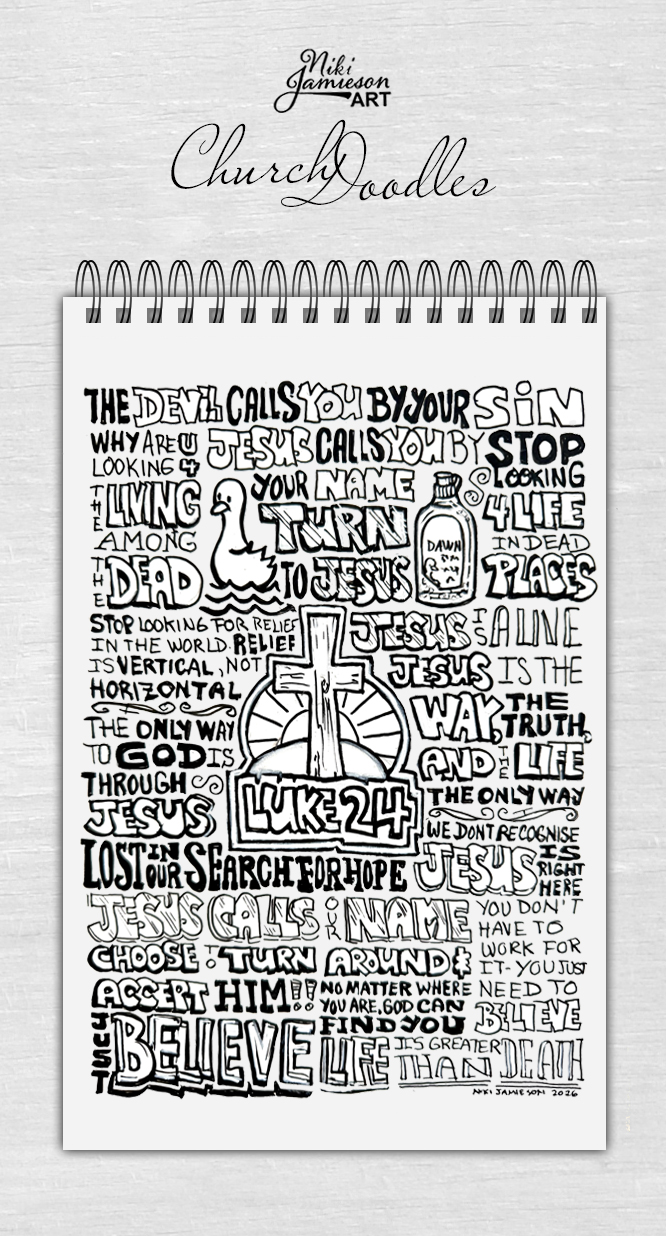 Niki
Jamieson
ART
Church Doodles
THE DEVIL CALLS YOU BY YOUR SiN
WHY ARE U
LOOKING 4
THE LIVING
AMONG
THE DEAD
JESUS CALLS YOU BY
YOUR NAME
TURN
TO JESUS
DAWN
STOP
LOOKING
4 LIFE
IN DEAD
PLACES
STOP LOOKING FOR RELIEF
IN THE WORLD. RELIEF
IS VERTICAL, NOT
HORIZONTAL
JESUS IS ALIVE
JESUS IS THE
WAY, THE TRUTH,
AND THE LIFE
THE ONLY WAY
THE ONLY WAY
TO GOD IS
THROUGH
JESUS
LUKE 24
WE DONT RECOGNISE
JESUS IS RIGHT HERE
LOST IN OUR SEARCH FOR HOPE
JESUS CALLS UR NAME
CHOOSE! TURN AROUND &
ACCEPT HIM!!
YOU DON'T
HAVE TO
WORK FOR
IT-YOU JUST
NEED TO
BELIEVE
NO MATTER WHERE
YOU ARE, GOD CAN
FIND YOU
JUST BELIEVE
LIFE IS GREATER
THAN DEATH
NIKI JAMIESON 2026